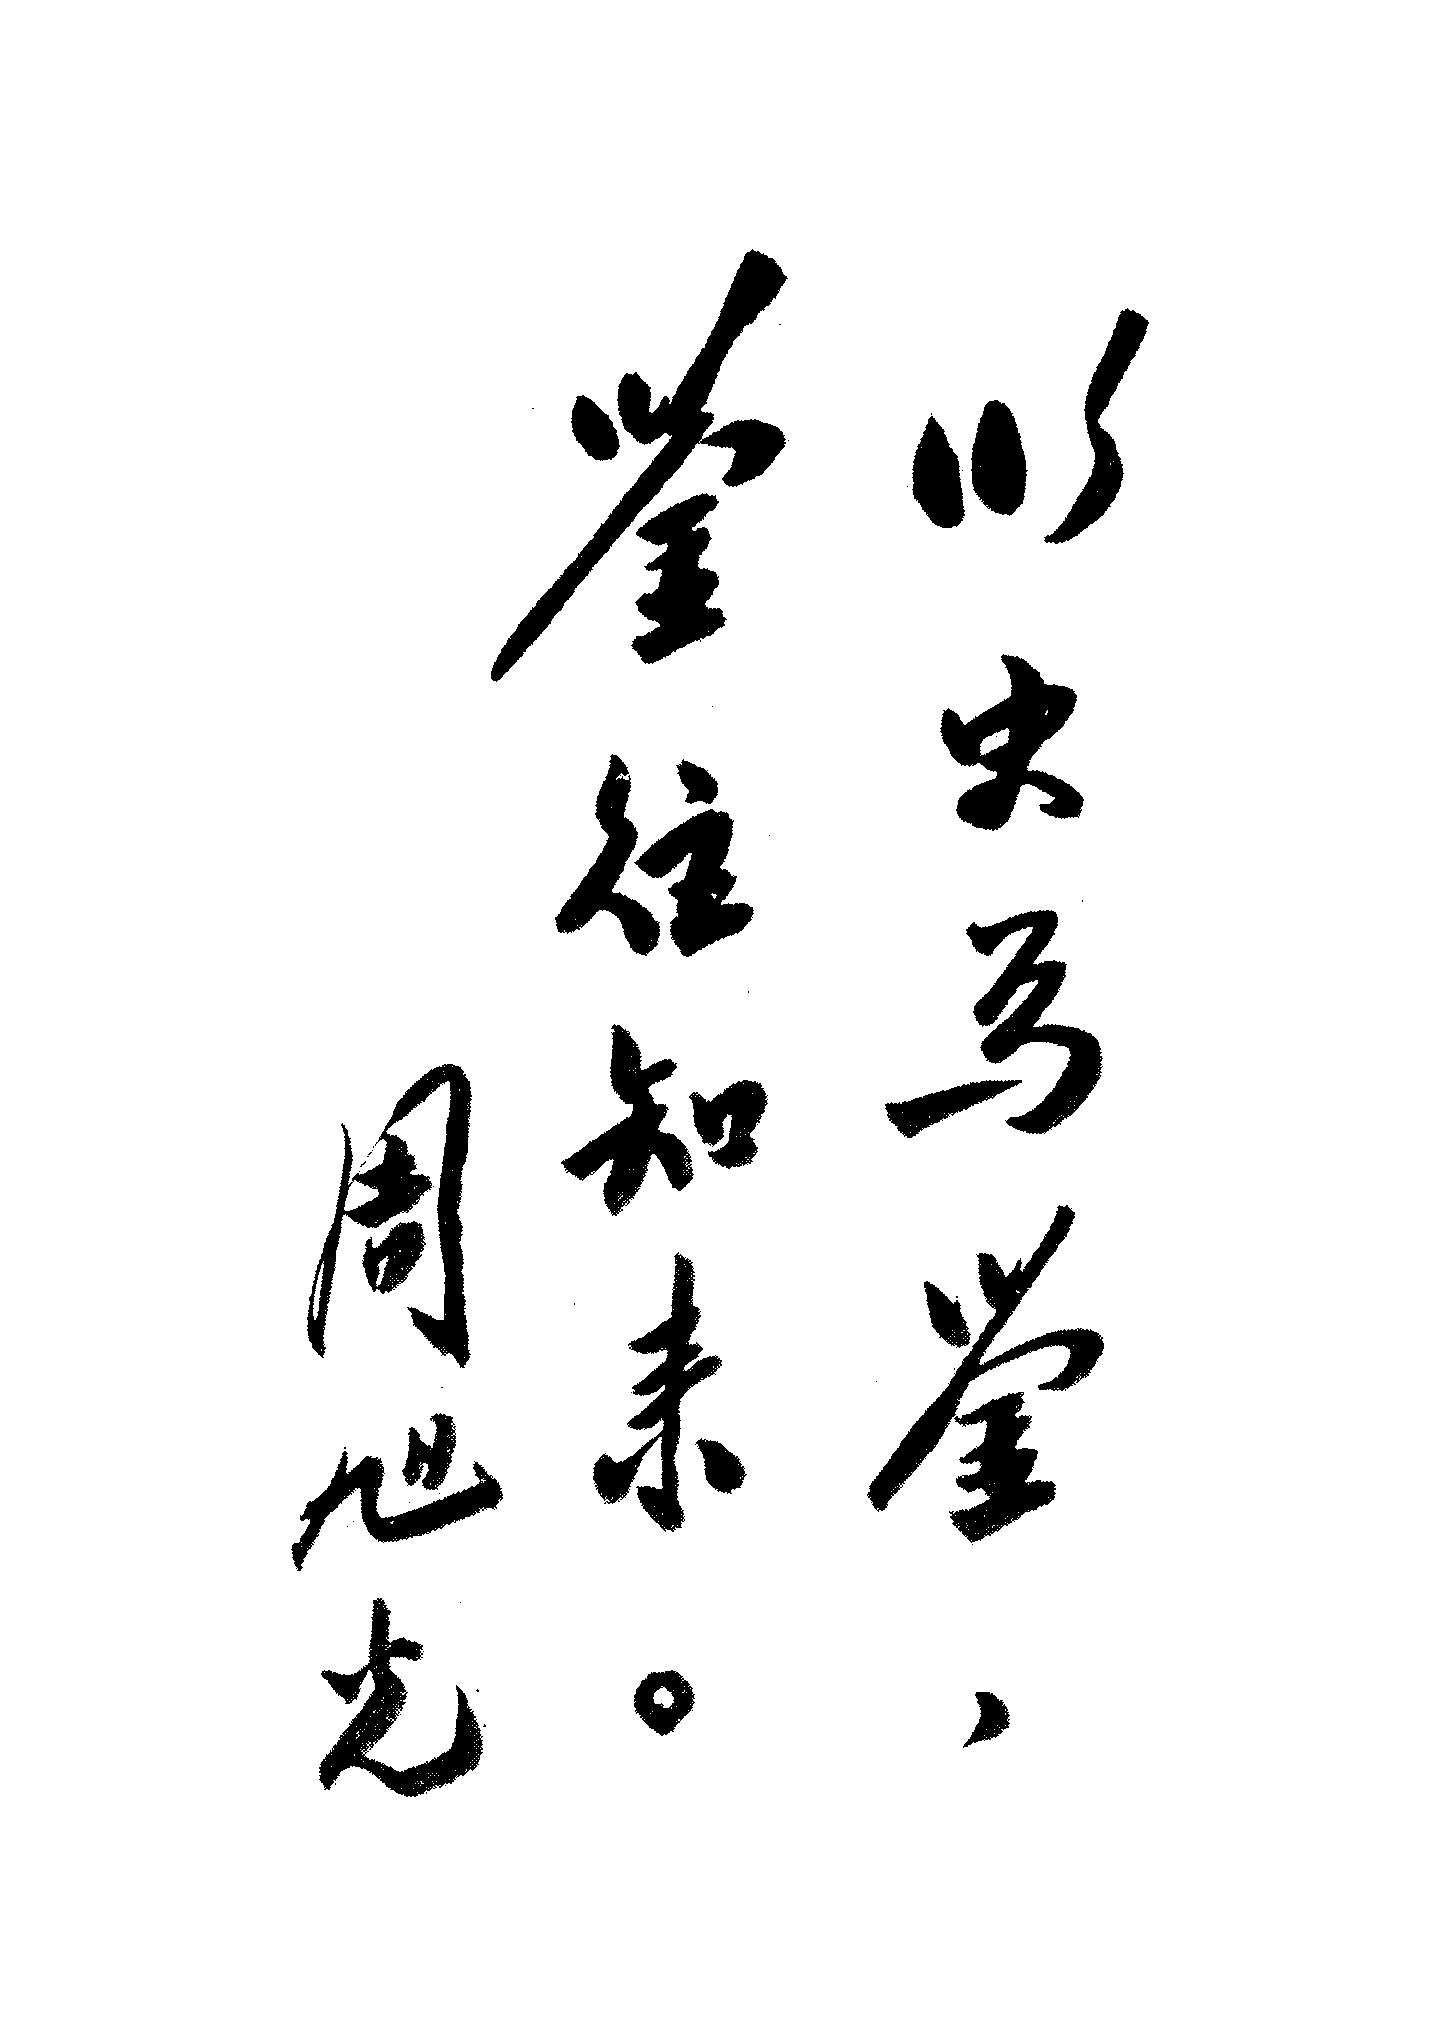 以史為鉴、
鉴往知来。
周旭光